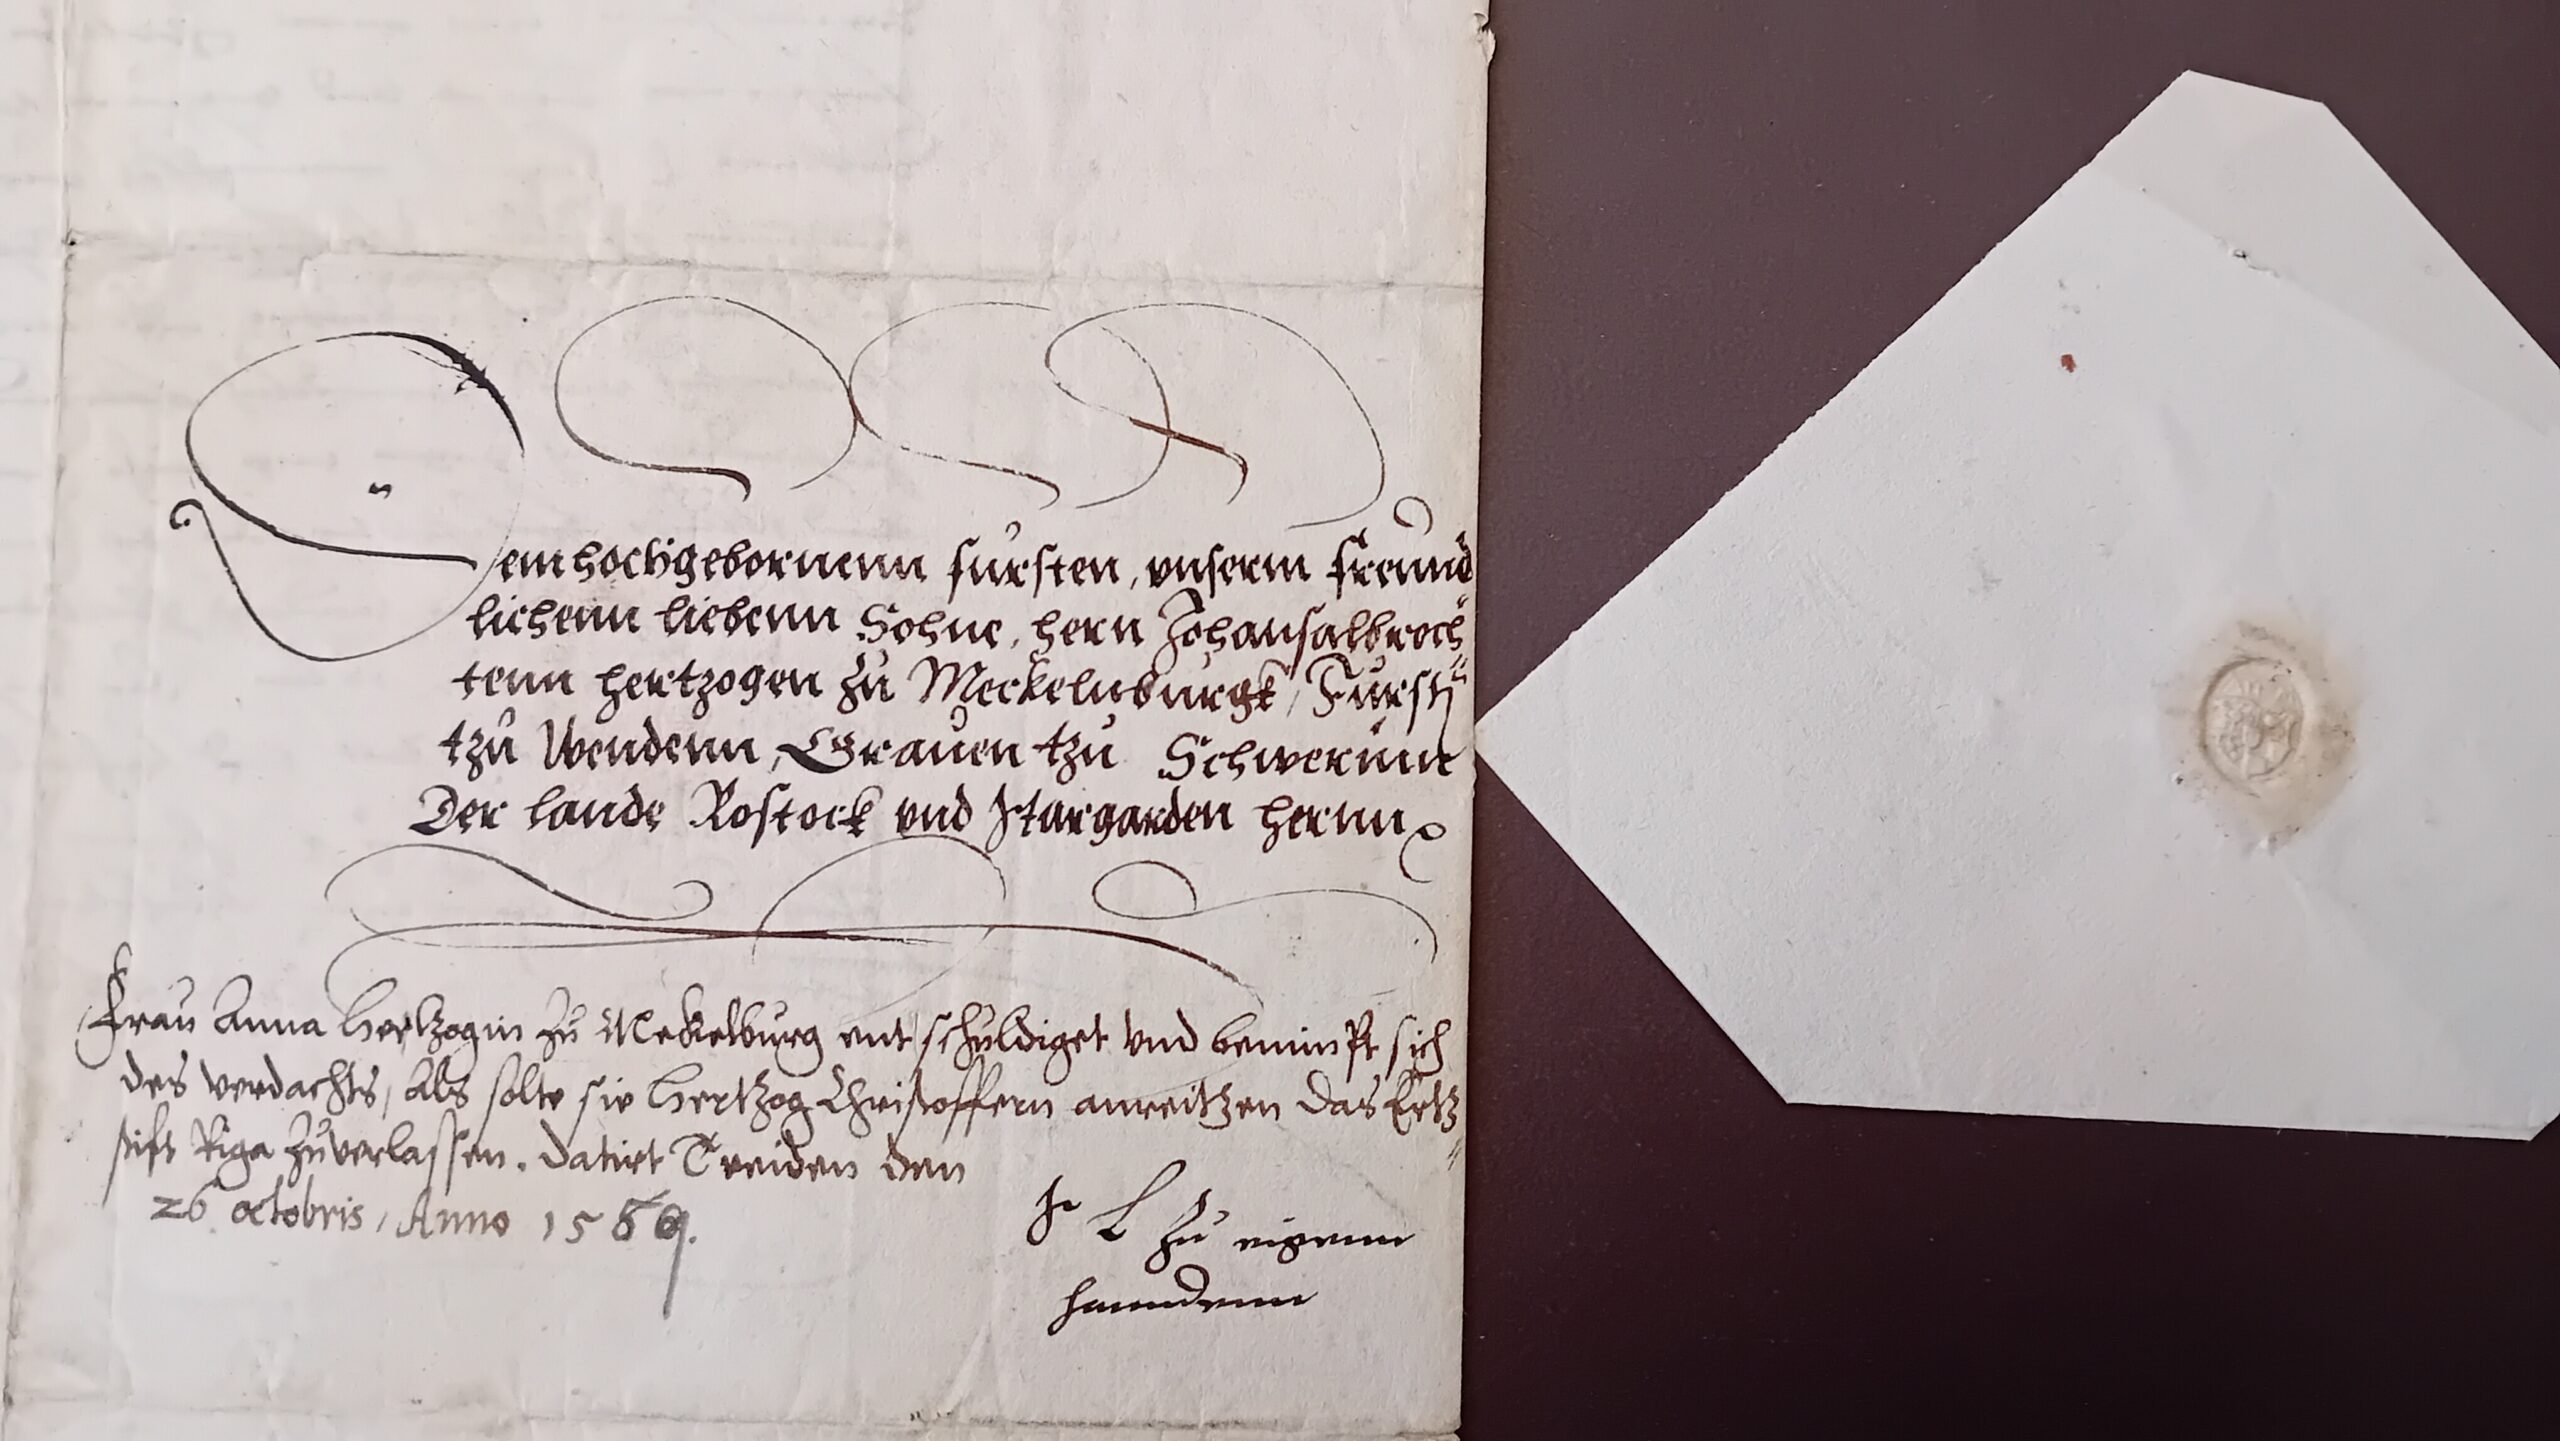 Dem hochgebornenn fursten, vnserm freund
lichenn liebenn Sohne, hern Johansalbrech
tenn hertzogen zu Meckelnburgk, Fursten
tzu Wendenn, Grauen tzu Schwerinn
Der lande Rostock vnd Stargarden hernn
Frau Anna Hertzogin zu Meckelburg entschuldiget vnd benimpt sich
des verdachts, Als solte sie Hertzog Christoffern anreitzen das Ertz
stift Riga zuverlassen. Datirt Treiden den
26 octobris, Anno 1569.
Jr L zu eigenn
hanndenn